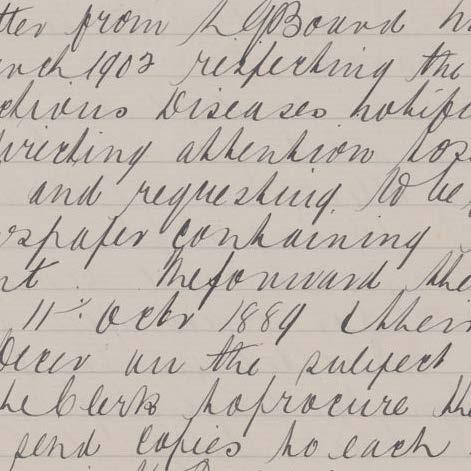 tter from L G Board
arch 1902 respecting the
ctious Diseases notific
directing attention to
and requesting to be
wspaper containing
nt. the
11th octbr 1889
on the subject
he Clerk to procure the
send copies to each